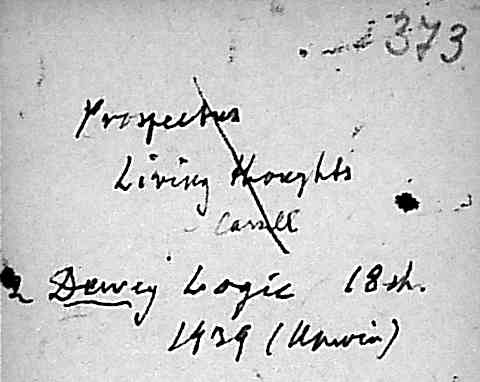 373
Prospectus
Living thoughts
Cassell
Dewey Logic 18 sh.
1939 (Unwin)